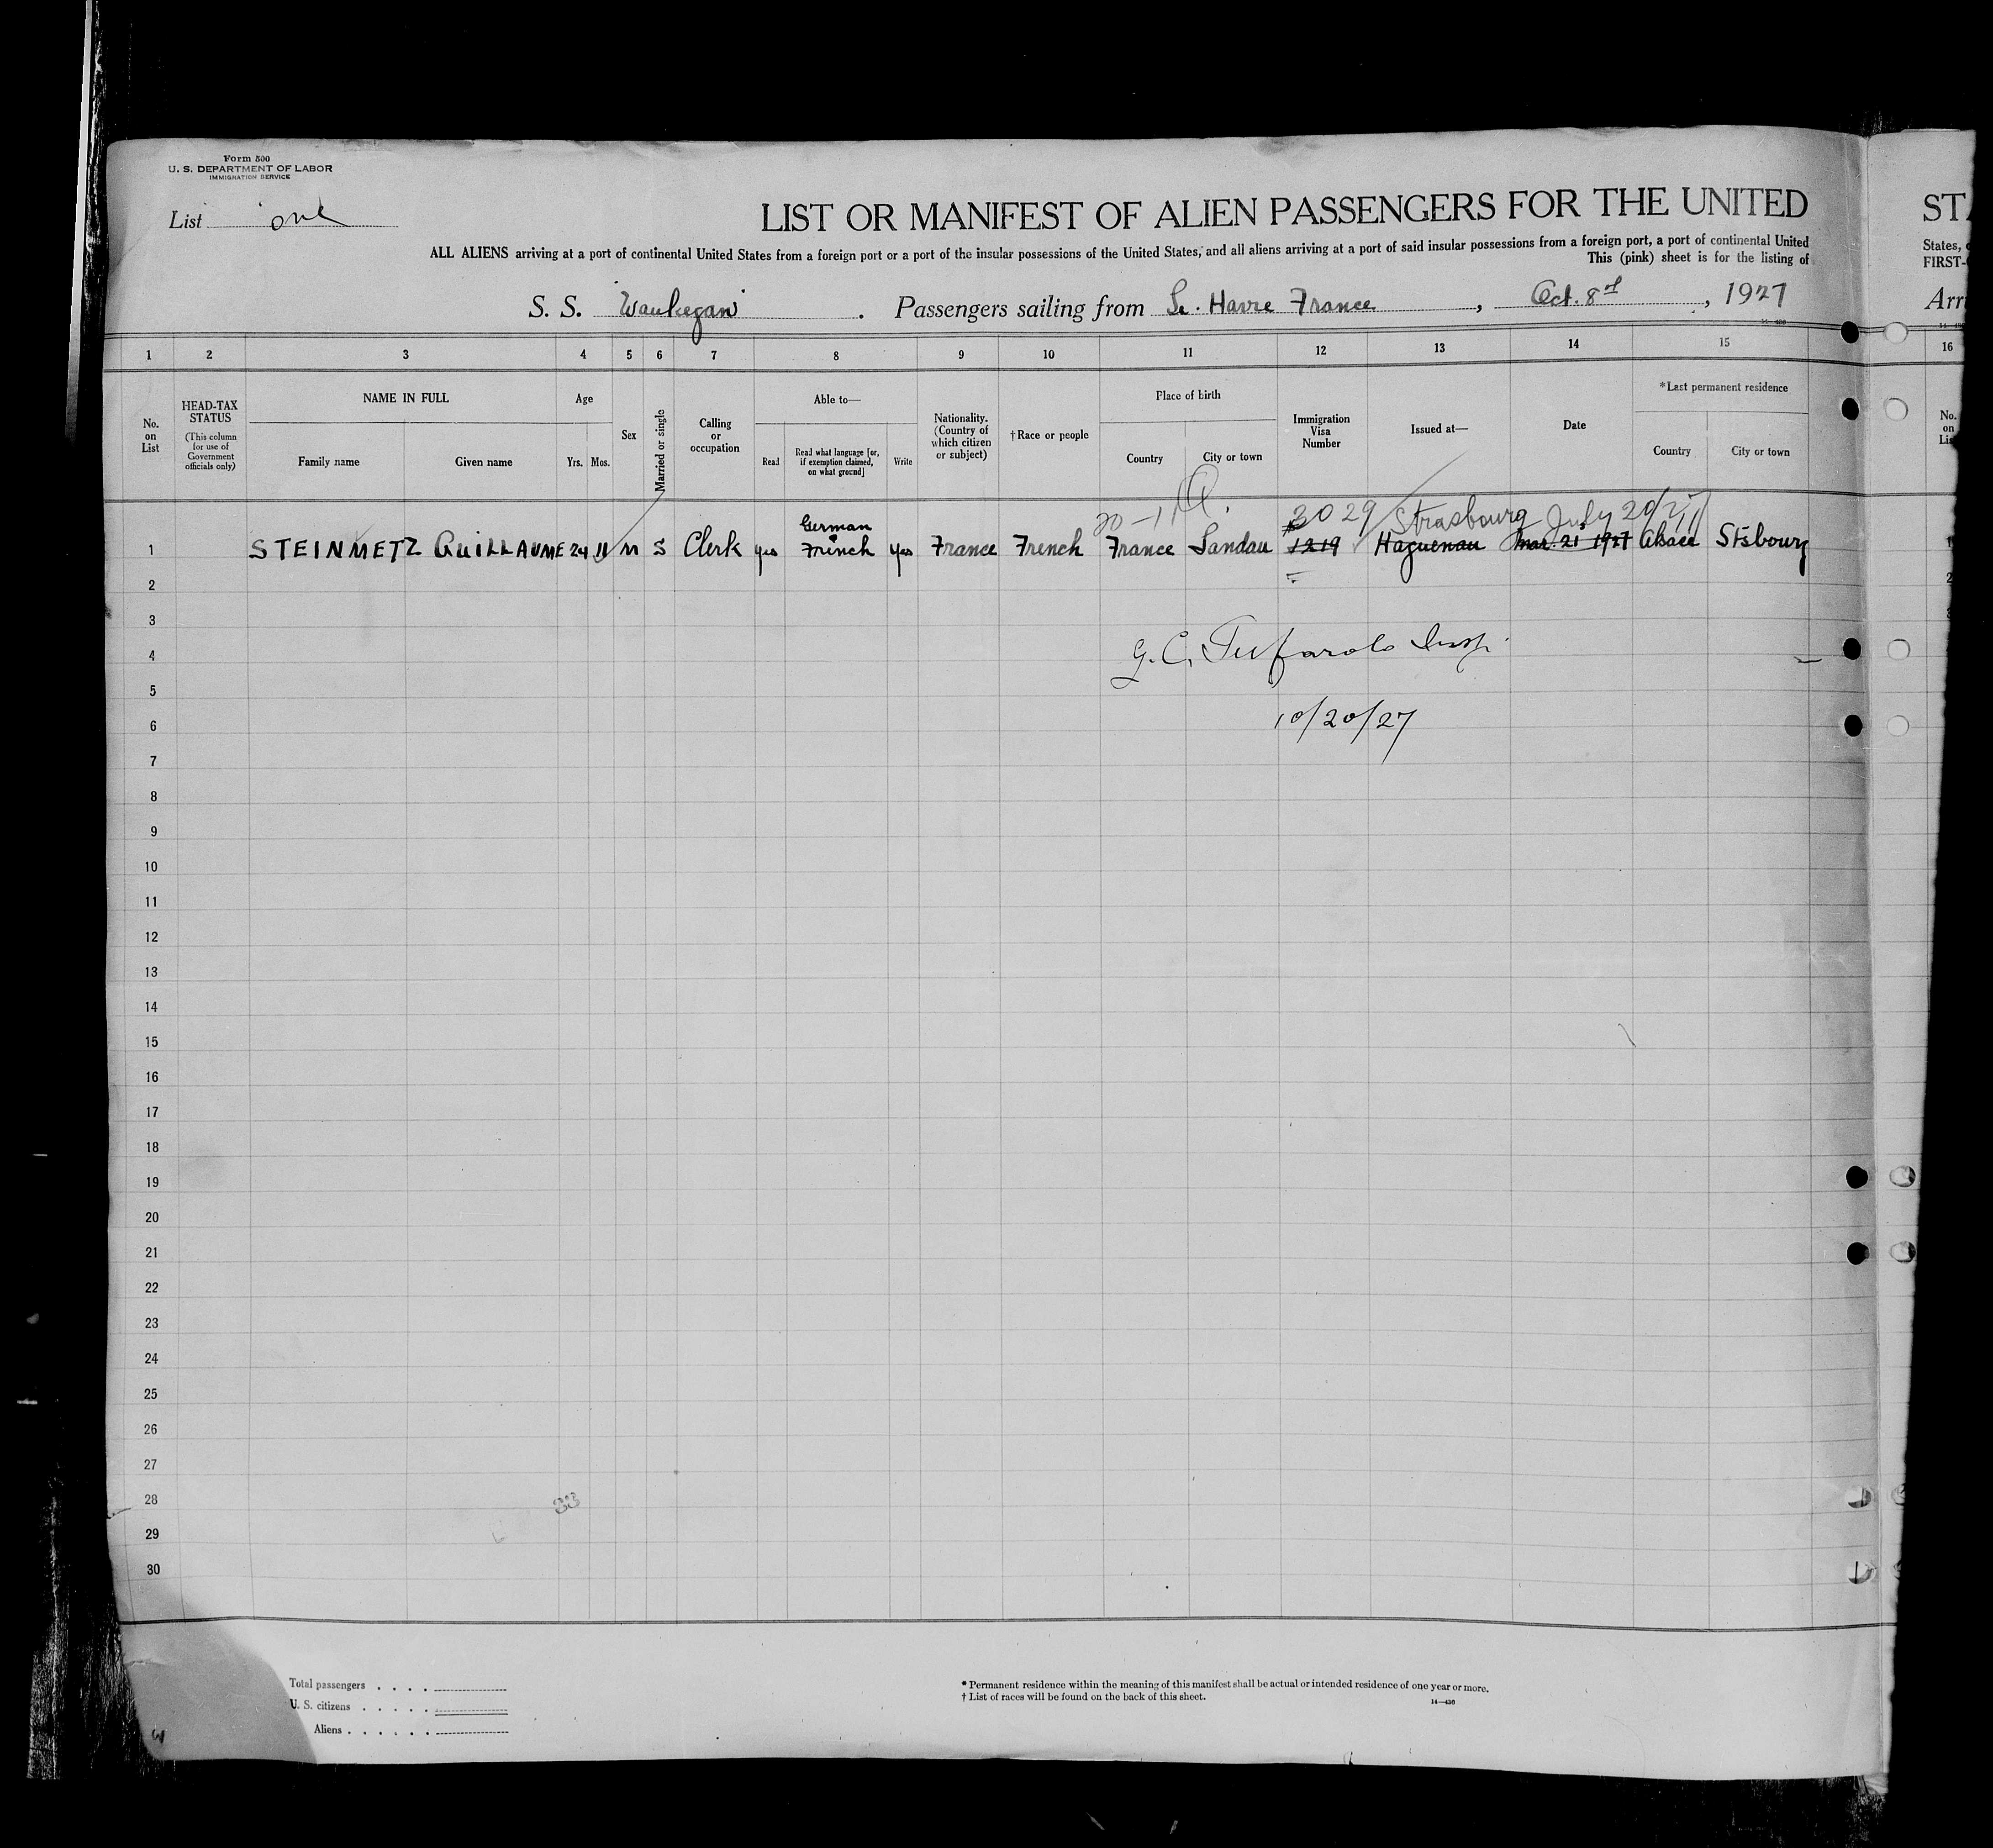 Form 500
U. S. DEPARTMENT OF LABOR
IMMIGRATION SERVICE
List one
LIST OR MANIFEST OF ALIEN PASSENGERS FOR THE UNITED
ST
ALL ALIENS arriving at a port of continental United States from a foreign port or a port of the insular possessions of the United States, and all aliens arriving at a port of said insular possessions from a foreign port, a port of continental United
States,
This (pink) sheet is for the listing of
FIRST-
S. S. Waukegan . Passengers sailing from Le. Havre France , Oct. 8 , 1927
Arr
1 2 3 4 5 6 7 8 9 10 11 12 13 14 15 16
No. on List
HEAD-TAX STATUS (This column for use of Government officials only)
NAME IN FULL
Family name Given name
Age
Yrs. Mos.
Sex
Married or single
Calling or occupation
Able to—
Read
Read what language [or, if exemption claimed, on what ground]
Write
Nationality. (Country of which citizen or subject)
†Race or people
Place of birth
Country City or town
Immigration Visa Number
Issued at—
Date
*Last permanent residence
Country City or town
No. on
3029 Strasbourg July 20/27
German
1 STEINMETZ GUILLAUME 24 11 M S Clerk yes French yes France French France Landau 1219 Haguenau Mar. 21 1927 Alsace Stsbourg
2
3
G. C. Insp.
4
5
10/20/27
6
7
8
9
10
11
12
13
14
15
16
17
18
19
20
21
22
23
24
25
26
27
28 33
29
30
Total passengers . . . .
U. S. citizens . . . . .
Aliens . . . . . .
* Permanent residence within the meaning of this manifest shall be actual or intended residence of one year or more.
† List of races will be found on the back of this sheet.
14—430